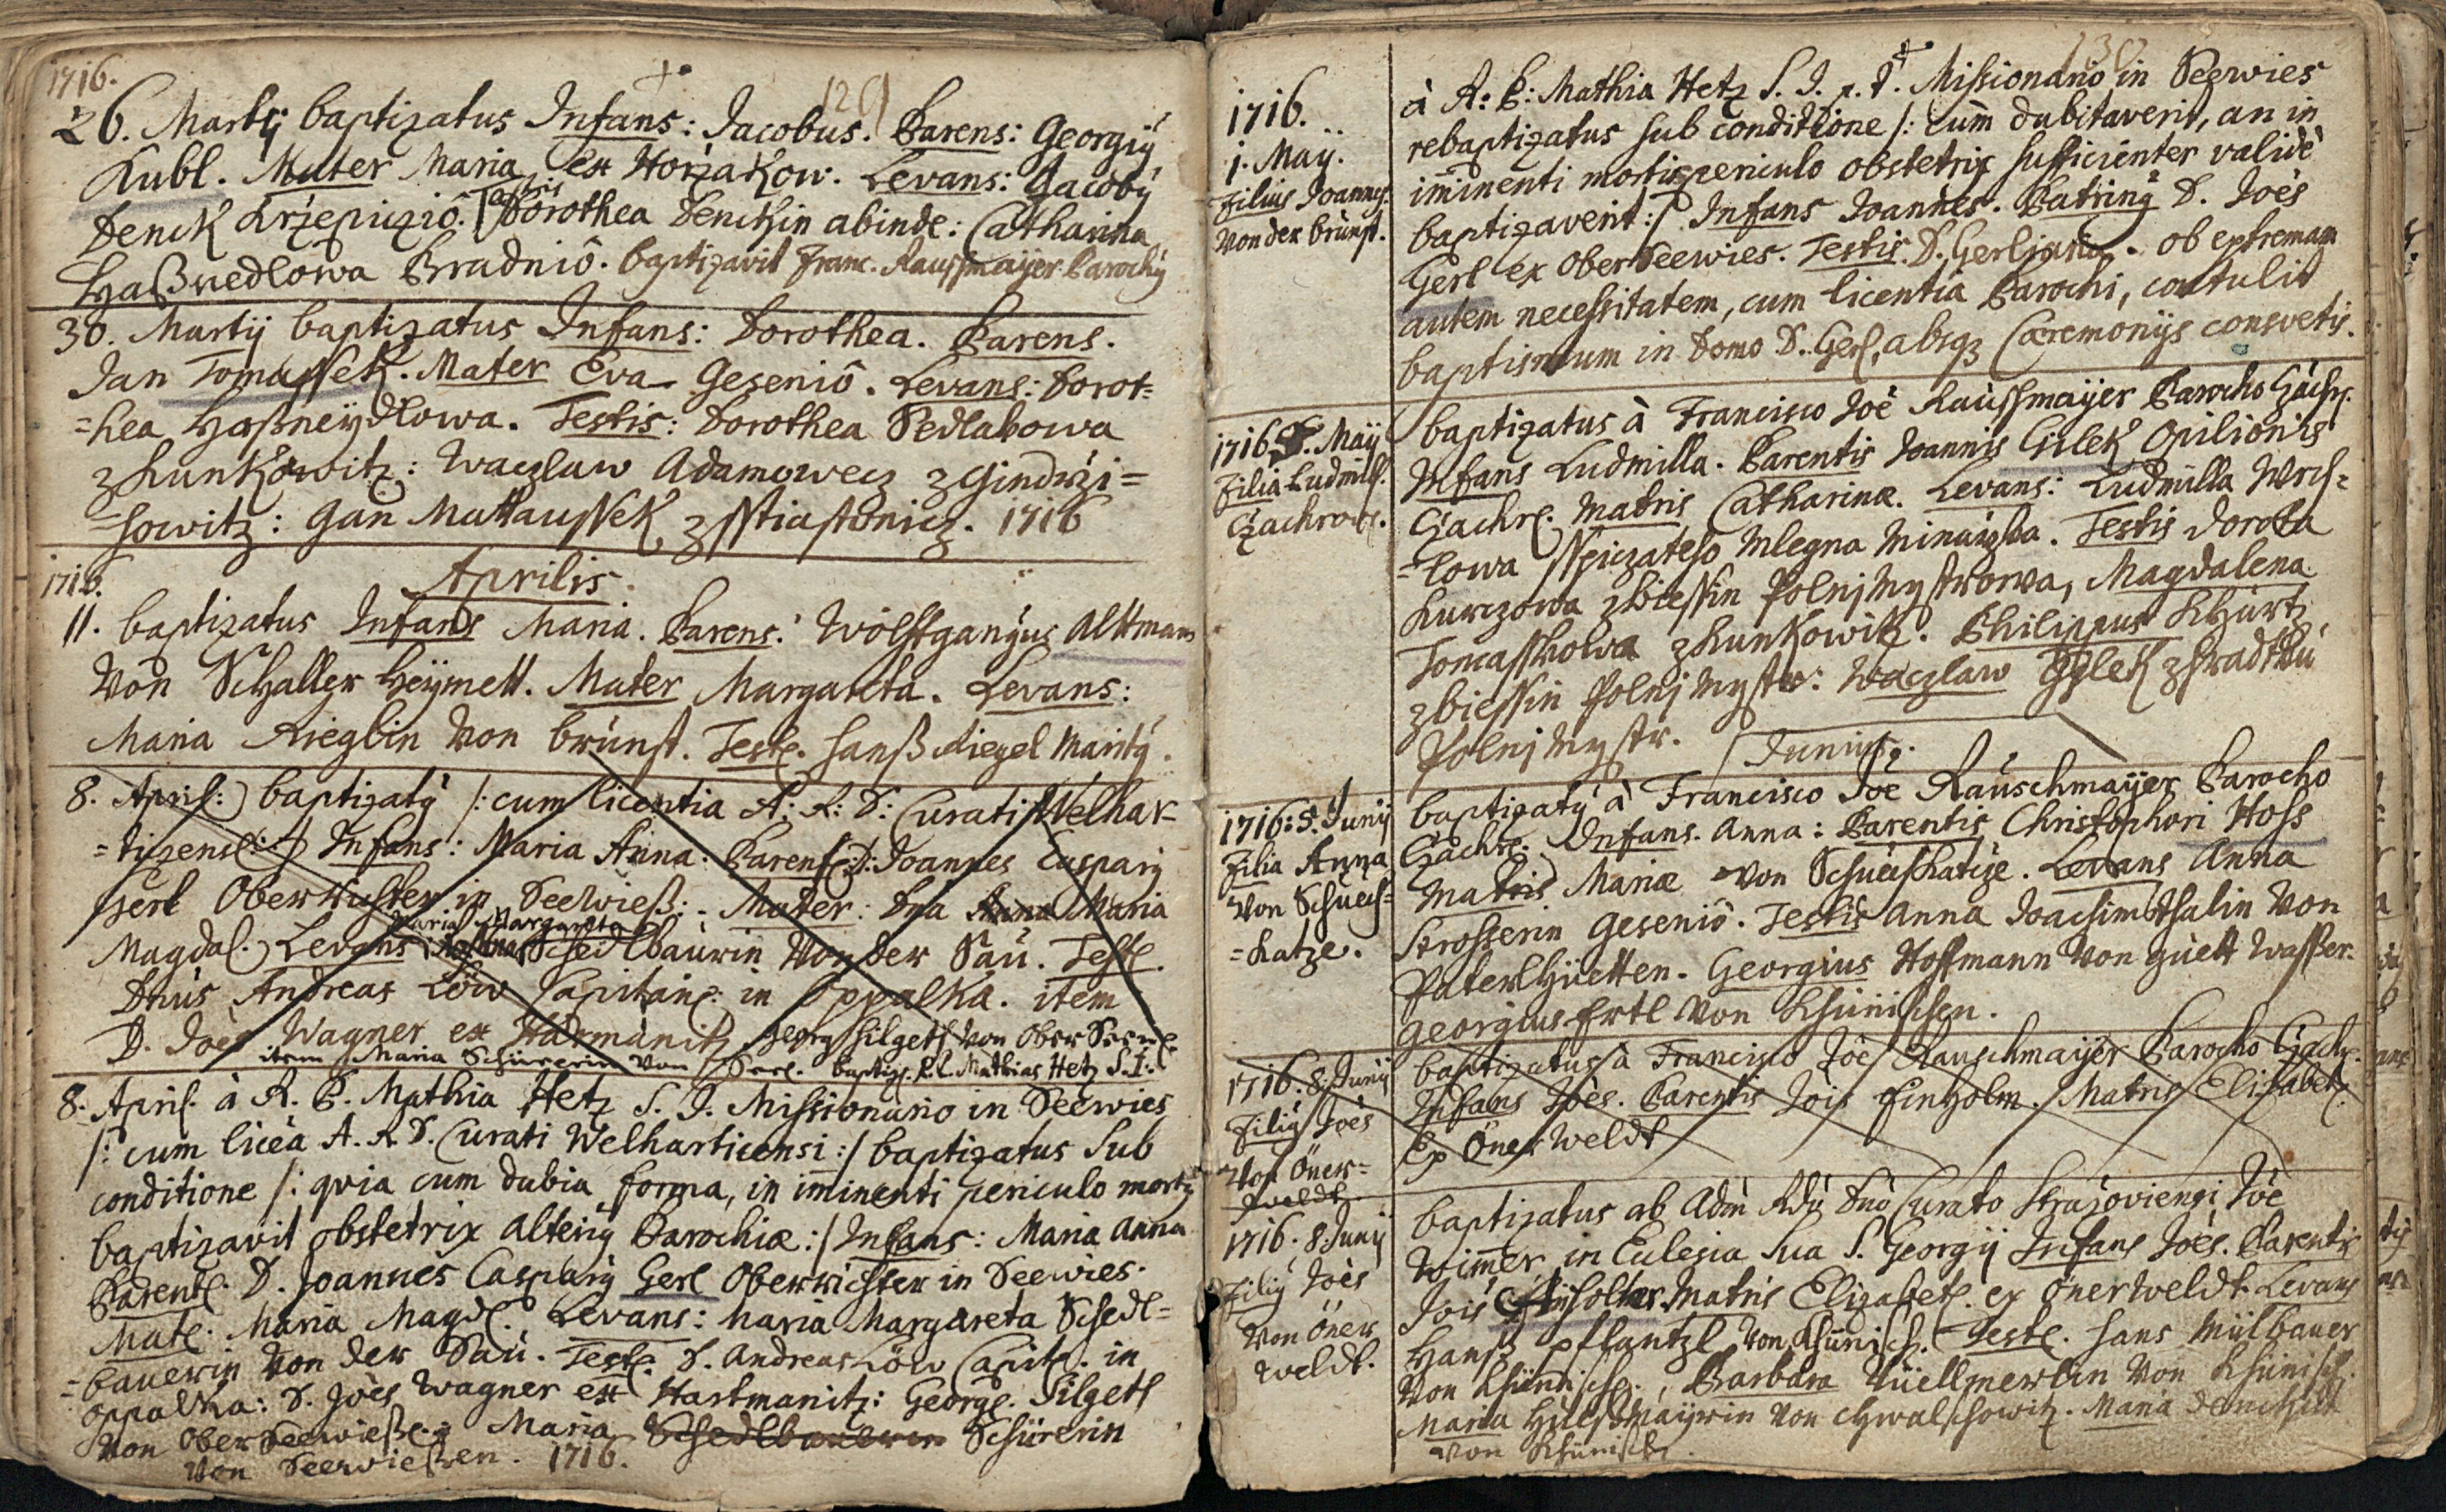 1716.
129
26. Martij baptizatus Infans: Jacobus. Parens: Georgiÿ
Kubl. Mater Maria ex Horzakow. Levans: Jacobÿ
Denck Krzepiczio. Testis Dorothea Denckin abinde: Catharina
Haßnedlowa Bradniô. baptizavit Franc. Rauschmayer Parochÿ
30. Martij baptizatus Infans: Dorothea. Parens.
Jan Tomassek. Mater Eva Geseniô. Levans: Dorot=
=hea Haßneÿdlowa. Testis: Dorothea Sedlakowa
z Kunkowitz: Waczlaw Adamowecz z Gindrzi=
=howitz: Gan Mattaussek z Sstiastonicz. 1716
1716.
Aprilis.
11. baptizatus Infans Maria. Parens: Wolffgangus Alttman
von Schaller Heÿmett. Mater Margareta. Levans:
Maria Rieglin von brünst. Test. Hanß Riegel Maritÿ.
8. April:) baptizatÿ /: cum licentia A: R: D: Curati Welhar-
=tizens: / Infans: Maria Anna. Parens D: Joannes Casparÿ
Gerl Oberrichter in Seewieß: Mater: Dna Anna Maria
Magdal. Levans: Maria Margareta Schedlbaurin von der Sau. Test.
Dnus Andreas Löw Capitan. in Oppalka. item
D. Joes Wagner ex Harmanitz Georg Hilgetl von Ober Seew.
item Maria Schürerin von Seew. baptiz. R. P. Mathias Hetz S. I.
8. April. à R. P. Mathia Hetz S. J. Missionario in Seewies
/: cum licẽa A. R D. Curati Welharticensi :/ baptizatus sub
conditione /: qvia cum dubia forma, in im̃inenti periculo mortÿ
baptizavit obstetrix alteriÿ Parochiæ :/ Infans: Maria Anna
Parent. D. Joannes Casparÿ Gerl Oberrichter in Seewies.
Mate. Maria Magd. Levans: Maria Margareta Schedl=
=bauerin von der Sau. Test. D. Andreas Löw Capit. in
Oppalka: D. Joes Wagner ex Hartmanitz: Georg. Hilgetl
von Ober Seewieße.: Maria Schedlbauerin Schürerin
von Seewießen. 1716.
130
1716.
1. Maÿ.
Filius Joannes.
von der brünst.
à R: P: Mathia Hetz S. J. p. t. Missionario in Seewies
rebaptizatus sub conditione /: cum dubitaverit, an in
im̃inenti mortis periculo obstetrix sufficienter validè
baptizaverit :/ Infans Joannes. Patrinÿ D. Joês
Gerl ex Ober Seewies. Testis D. Gerliana. ob extremam
autem necessitatem, cum licentiâ Parochi, contulit
baptismum in Domo D. Gerl, absqz Cæremonijs consvetis.
1716 5. Maÿ
Filia Ludmill.
Czachrow.
baptizatus à Francisco Joê Rauschmaÿer Parocho Czachr.
Infans Ludmilla. Parentis Joannis Gilek Opilionis
Czachr. Matris Catharinæ. Levans: Ludmilla Wrh=
=lowa Sspiczateho Mlegna Minarzka. Testis Dorota
Kurczowa z biessin Polnj Mystrowa, Magdalena
Tomasskowa z Kunkowitz. Philippus Khurtz
z biessin Polnj Mystr: Waczlaw Gilek z hradkú
Polnj Mystr.
Junius.
1716: 5. Junij
Filia Anna
von Schuech=
=katze.
baptizatÿ à Francisco Joê Rauschmaÿer Parocho
Czachr. Infans. Anna: Parentis Christophori Hoss
Matris Mariæ von Schuechkatze. Levans Anna
Strosserin Geseniô. Testis Anna Joachimsthalin von
Paterlhüetten. Georgius Hoffmann von güett Wasser.
Georgius Ertl von Khünischen.
1716. 8. Junij
Filiÿ Joês
von Öner=
weldt.
baptizatus à Francisco Joê Rauschmaijer Parocho Czachr.
Infans Joês. Parentis Jois Einholm. Matris Elizabet.
ex Önerweldt
1716. 8. Junij
Filiÿ Joês
von Öner
weldt.
baptizatus ab Adm Rdo Dno Curato Strazoviensi Joê
Wim̃er in Eclesia sua S. Georgij Infans Joês. Parentis
Jois Matris Elizabet. ex Önerweldt. Levans
Hanß Pflantzl von Khünisch. Test. Hans Mülbauer
von Khünisch., Barbara von Khünisch.
Maria von Chwalschowitz. Maria
von Khünisch.